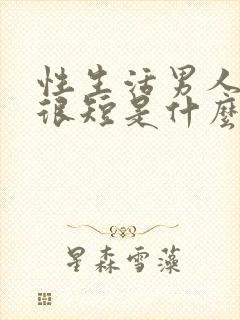 性生活男人
很短是什麼
星森雪藻